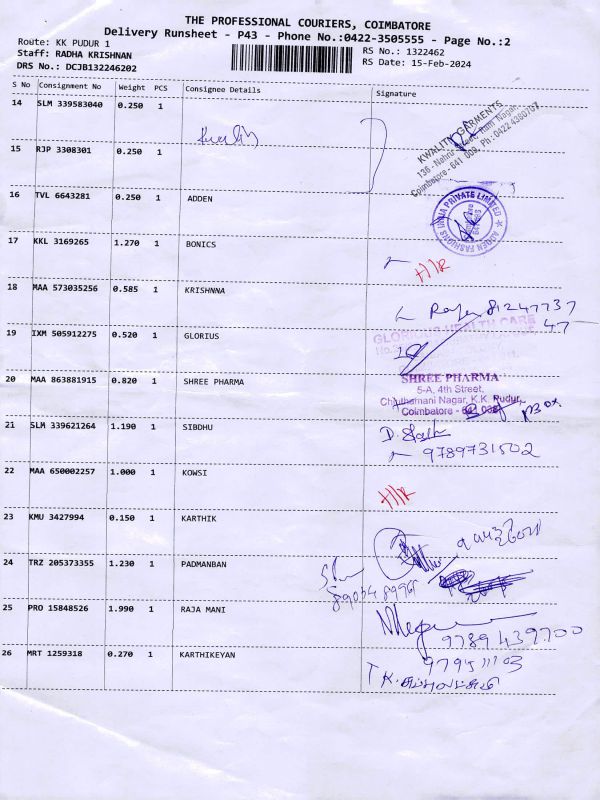 THE PROFESSIONAL COURIERS, COIMBATORE
Delivery Runsheet - P43 - Phone No.:0422-3505555 - Page No.:2
Route: KK PUDUR 1
Staff: RADHA KRISHNAN
DRS No.: DCJB132246202
RS No.: 1322462
RS Date: 15-Feb-2024
S No Consignment No Weight PCS Consignee Details Signature
14 SLM 339583040 0.250 1
KWALITY GARMENTS
136 - Nehru Street, Ram Nagar,
Coimbatore - 641 009, Ph : 0422 4380707
15 RJP 3308301 0.250 1
16 TVL 6643281 0.250 1 ADDEN
ADDEN FASHIONS INDIA PRIVATE LIMITED
17 KKL 3169265 1.270 1 BONICS
H/R
18 MAA 573035256 0.585 1 KRISHNNA
81247737
47
19 IXM 505912275 0.520 1 GLORIUS
HEALTH CARE
20 MAA 863881915 0.820 1 SHREE PHARMA
SHREE PHARMA
5-A, 4th Street,
Chinthamani Nagar, K.K. Pudur,
Coimbatore - 641 038
21 SLM 339621264 1.190 1 SIBDHU
9789731502
22 MAA 650002257 1.000 1 KOWSI
H/R
23 KMU 3427994 0.150 1 KARTHIK
24 TRZ 205373355 1.230 1 PADMANBAN
25 PRO 15848526 1.990 1 RAJA MANI
9789439700
26 MRT 1259318 0.270 1 KARTHIKEYAN